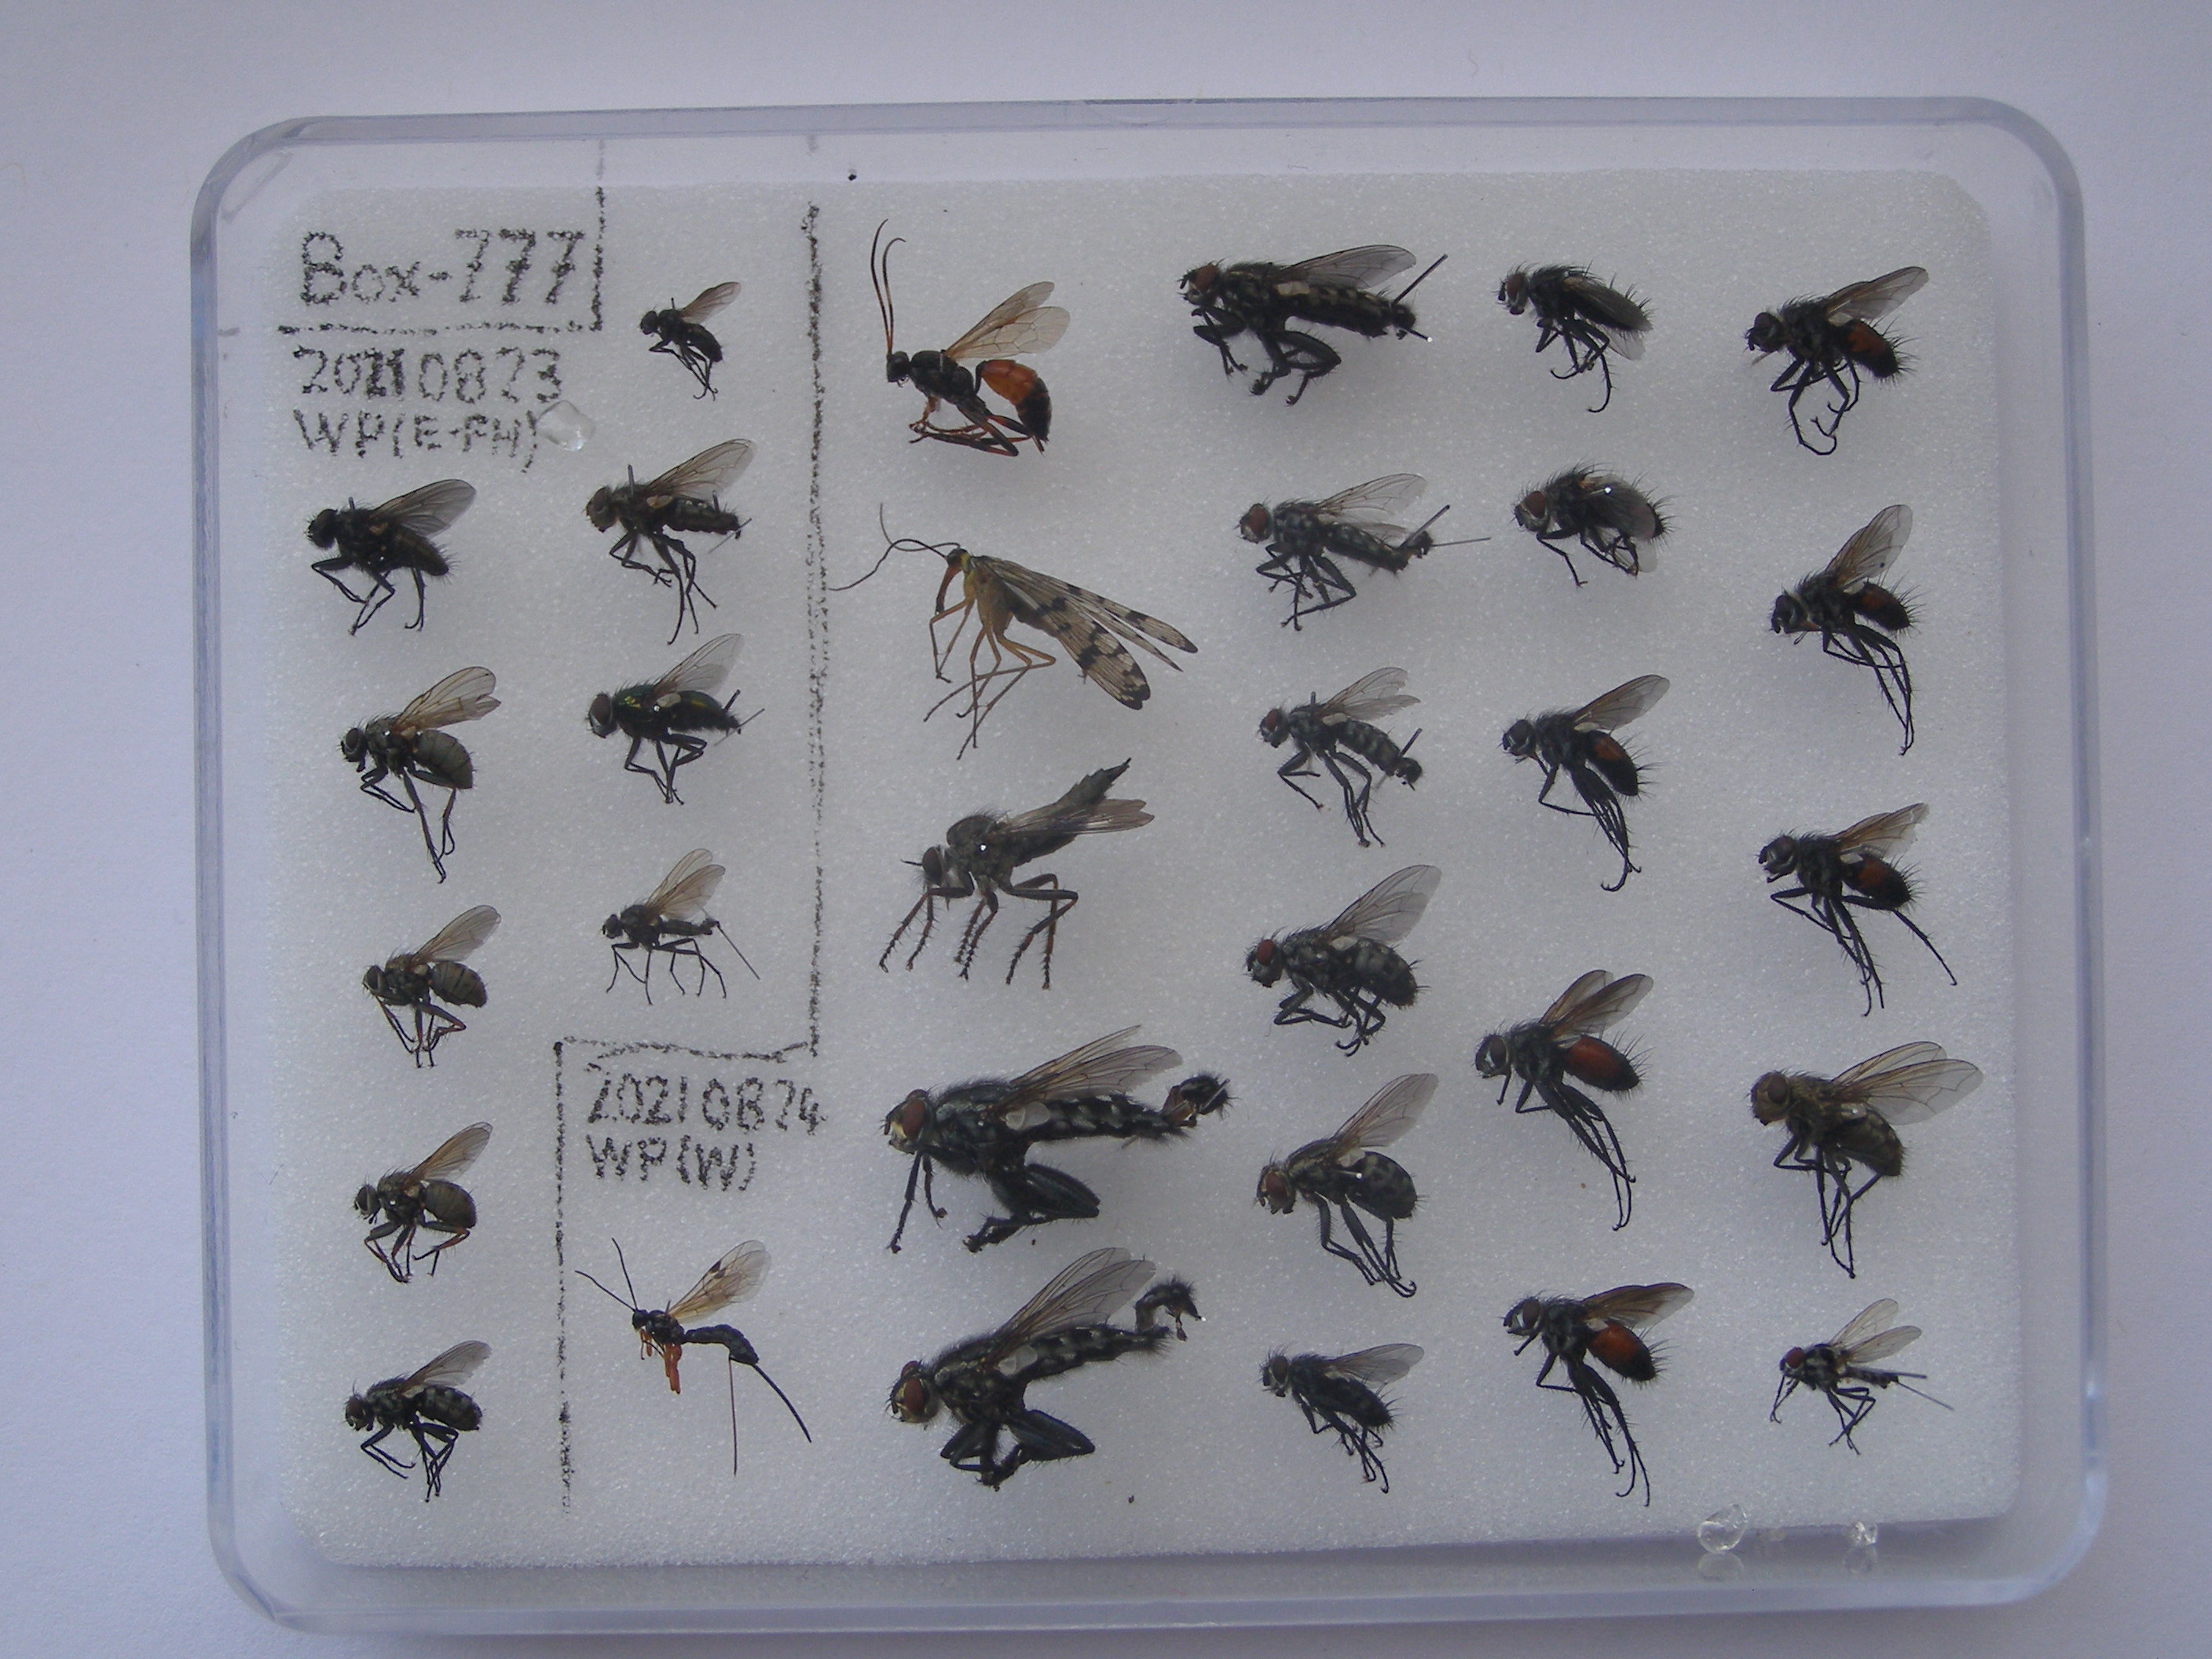 Box-777
20210823
WP(E-PH)
20210824
WP(W)